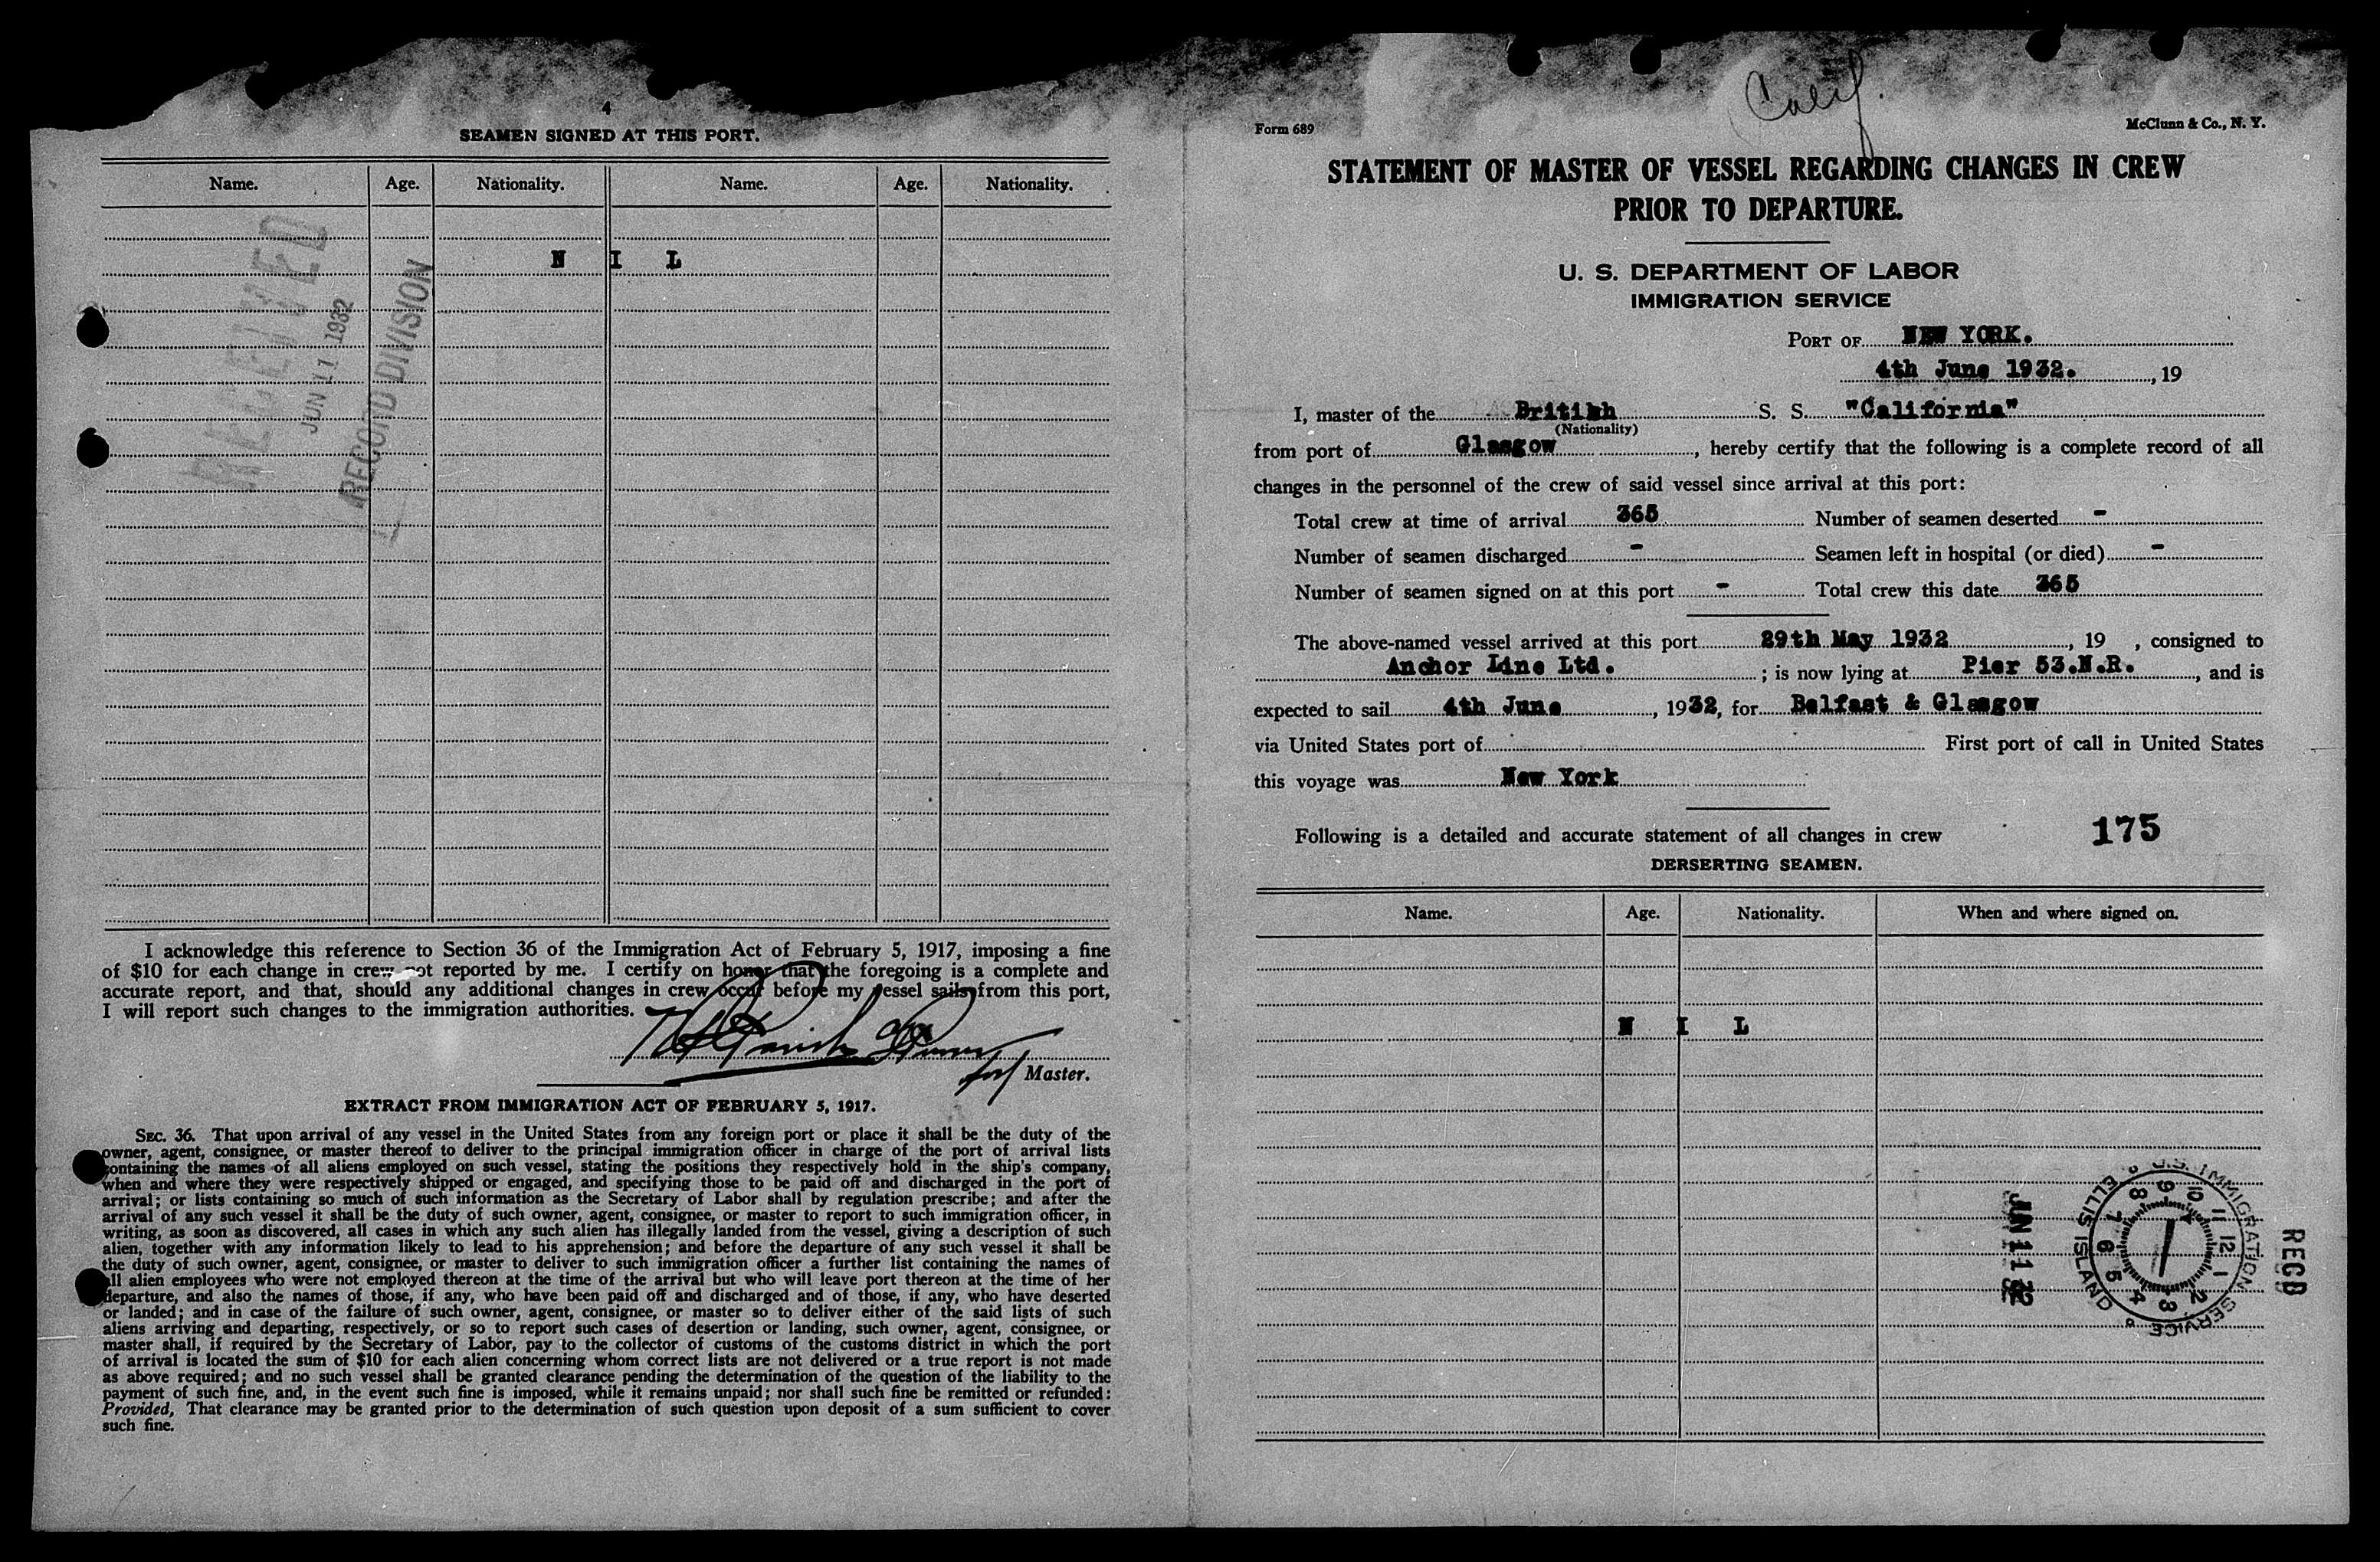 4
SEAMEN SIGNED AT THIS PORT.
Name. Age. Nationality. Name. Age. Nationality.
N I L
RECEIVED
JUN 11 1932
RECORD DIVISION
I acknowledge this reference to Section 36 of the Immigration Act of February 5, 1917, imposing a fine
of $10 for each change in crew not reported by me. I certify on honor that the foregoing is a complete and
accurate report, and that, should any additional changes in crew occur before my vessel sails from this port,
I will report such changes to the immigration authorities.
for Master.
EXTRACT FROM IMMIGRATION ACT OF FEBRUARY 5, 1917.
SEC. 36. That upon arrival of any vessel in the United States from any foreign port or place it shall be the duty of the
owner, agent, consignee, or master thereof to deliver to the principal immigration officer in charge of the port of arrival lists
containing the names of all aliens employed on such vessel, stating the positions they respectively hold in the ship's company,
when and where they were respectively shipped or engaged, and specifying those to be paid off and discharged in the port of
arrival; or lists containing so much of such information as the Secretary of Labor shall by regulation prescribe; and after the
arrival of any such vessel it shall be the duty of such owner, agent, consignee, or master to report to such immigration officer, in
writing, as soon as discovered, all cases in which any such alien has illegally landed from the vessel, giving a description of such
alien, together with any information likely to lead to his apprehension; and before the departure of any such vessel it shall be
the duty of such owner, agent, consignee, or master to deliver to such immigration officer a further list containing the names of
all alien employees who were not employed thereon at the time of the arrival but who will leave port thereon at the time of her
departure, and also the names of those, if any, who have been paid off and discharged and of those, if any, who have deserted
or landed; and in case of the failure of such owner, agent, consignee, or master so to deliver either of the said lists of such
aliens arriving and departing, respectively, or so to report such cases of desertion or landing, such owner, agent, consignee, or
master shall, if required by the Secretary of Labor, pay to the collector of customs of the customs district in which the port
of arrival is located the sum of $10 for each alien concerning whom correct lists are not delivered or a true report is not made
as above required; and no such vessel shall be granted clearance pending the determination of the question of the liability to the
payment of such fine, and, in the event such fine is imposed, while it remains unpaid; nor shall such fine be remitted or refunded:
Provided, That clearance may be granted prior to the determination of such question upon deposit of a sum sufficient to cover
such fine.
Calif.
Form 689 McClunn & Co., N. Y.
STATEMENT OF MASTER OF VESSEL REGARDING CHANGES IN CREW
PRIOR TO DEPARTURE.
U. S. DEPARTMENT OF LABOR
IMMIGRATION SERVICE
PORT OF NEW YORK.
4th June 1932. , 19
I, master of the British S. S. "California"
(Nationality)
from port of Glasgow , hereby certify that the following is a complete record of all
changes in the personnel of the crew of said vessel since arrival at this port:
Total crew at time of arrival 365 Number of seamen deserted -
Number of seamen discharged - Seamen left in hospital (or died) -
Number of seamen signed on at this port - Total crew this date 365
The above-named vessel arrived at this port 29th May 1932 , 19 , consigned to
Anchor Line Ltd. ; is now lying at Pier 53.N.R. , and is
expected to sail 4th June , 1932, for Belfast & Glasgow
via United States port of First port of call in United States
this voyage was New York
Following is a detailed and accurate statement of all changes in crew 175
DERSERTING SEAMEN.
Name. Age. Nationality. When and where signed on.
N I L
JUN 11 32
U.S. IMMIGRATION SERVICE ELLIS ISLAND
1 2 3 4 5 6 7 8 9 10 11 12
REC'D